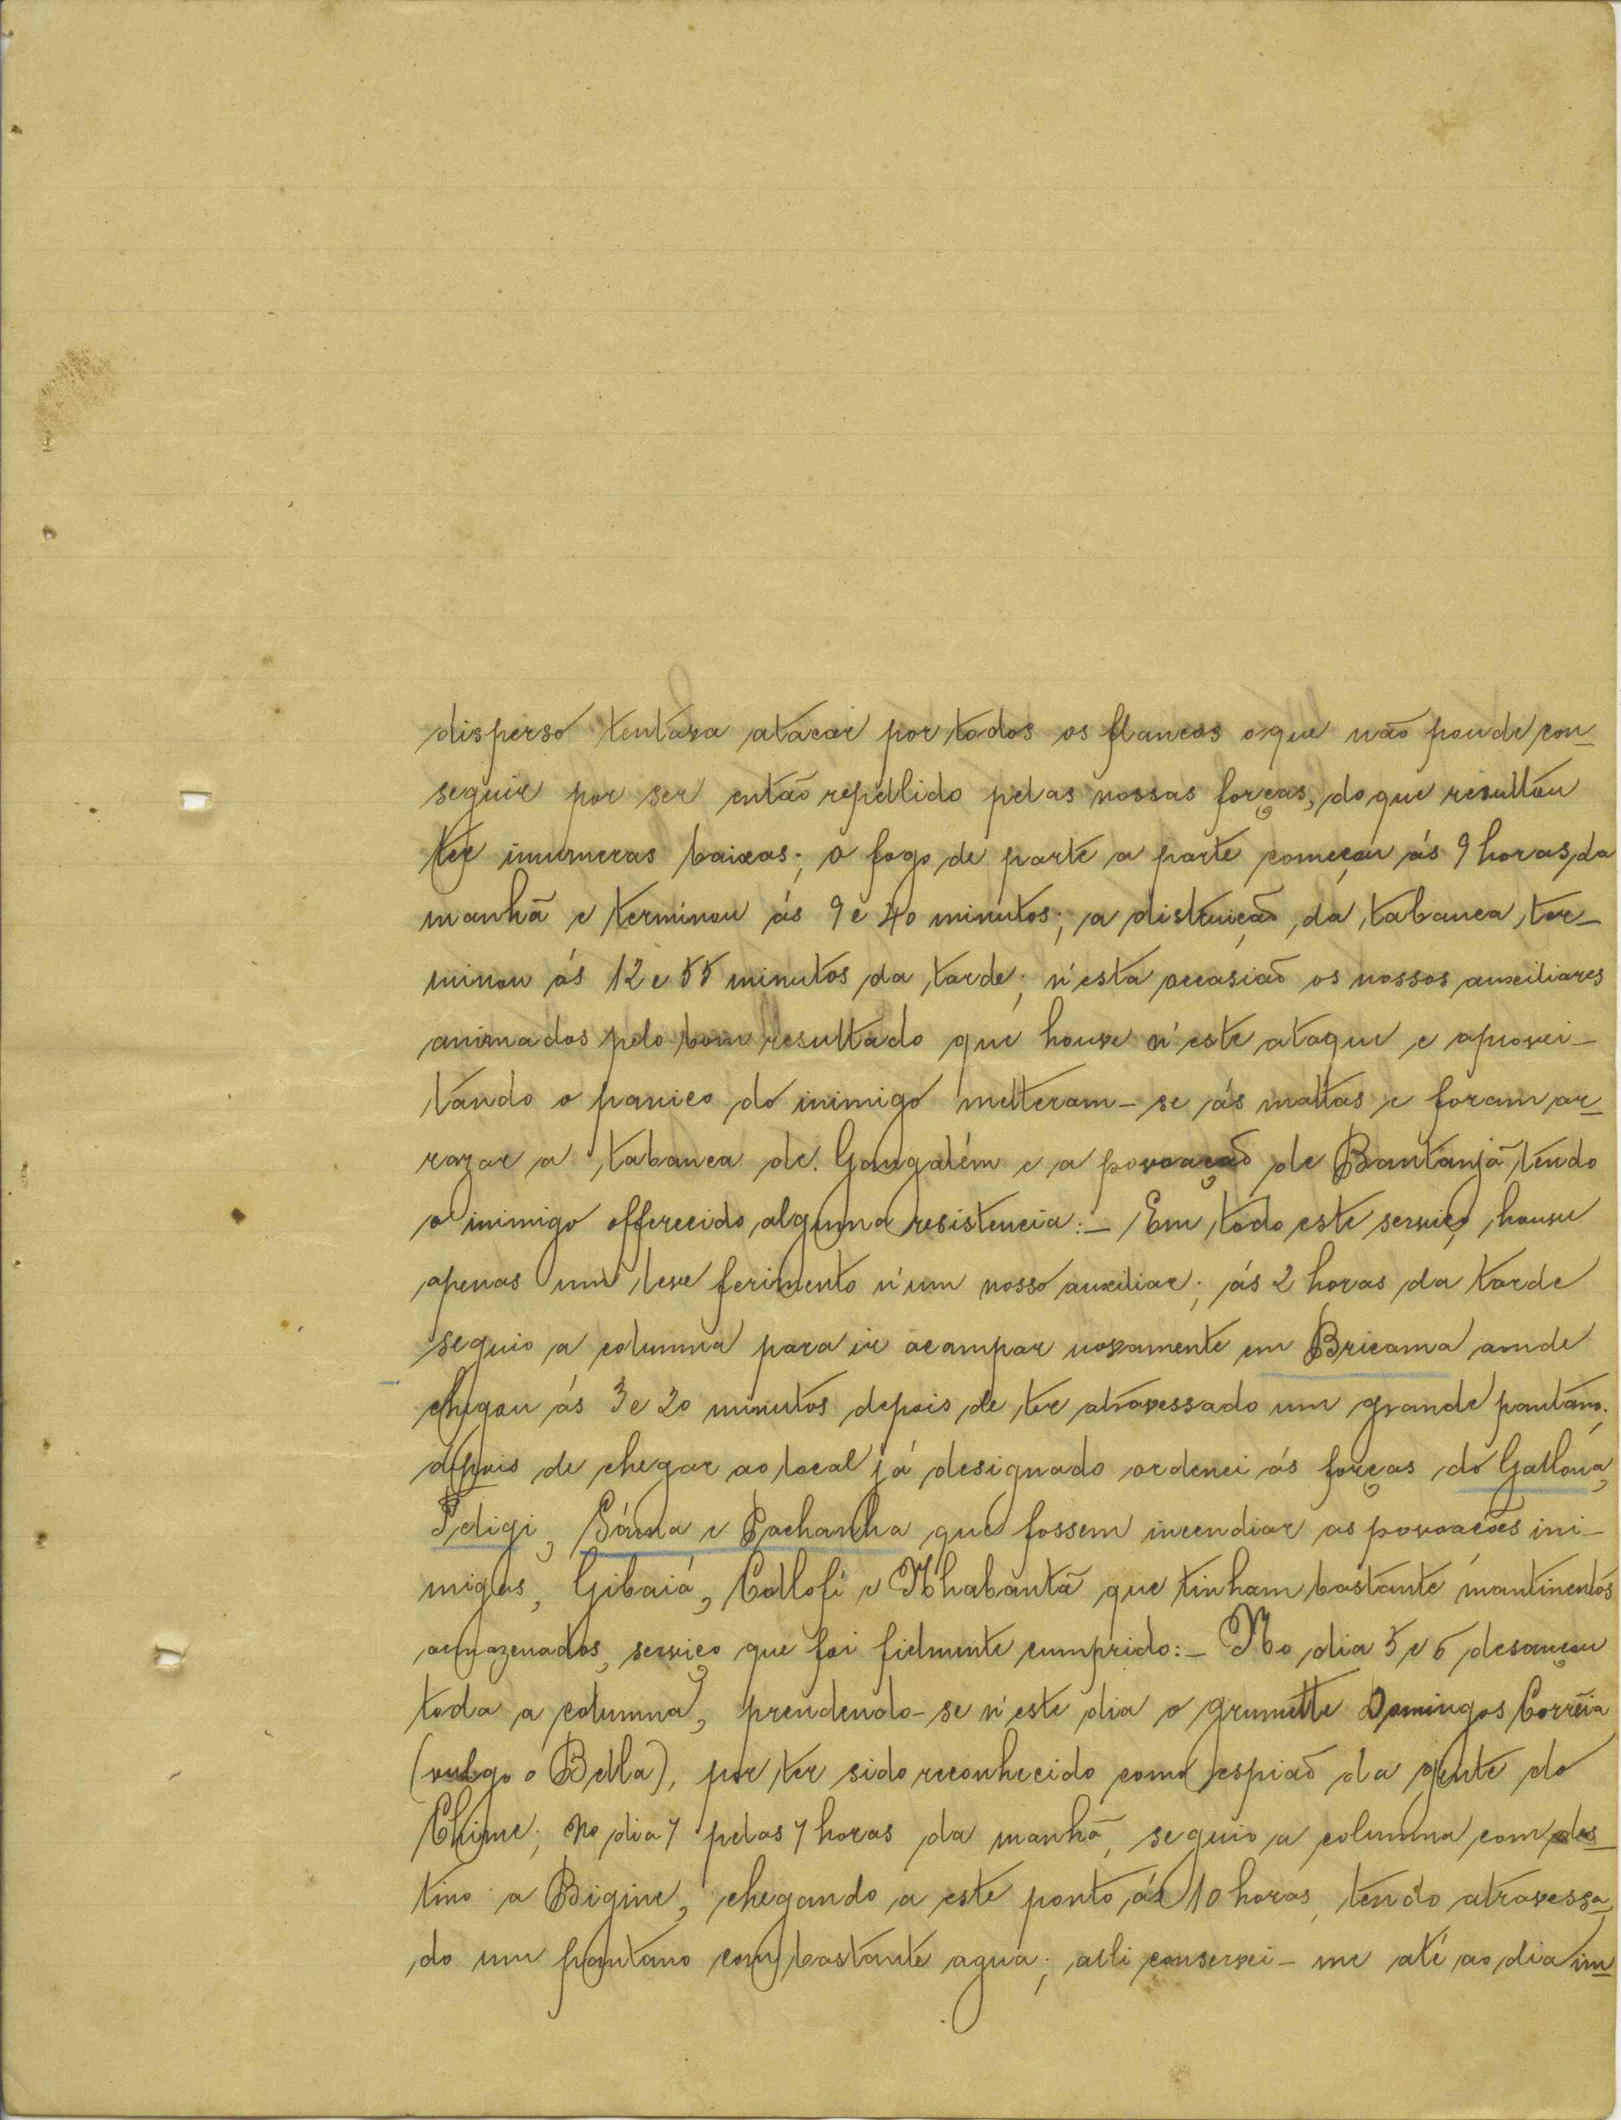 disperso tentava atacar por todos os flancos o que não poude con-
seguir por ser então repellido pelas nossas forças, do que resultou
ter inumeras baixas; o fogo de parte a parte começou ás 9 horas da
manhã e terminou ás 9 e 40 minutos; a distruição da tabanca ter-
minou ás 12 e 55 minutos da tarde; n'esta occasião os nossos auxiliares
animados pelo bom resultado que houve n'este ataque e aprovei-
tando o panico do inimigo metteram-se ás mattas e foram ar-
razar a tabanca de Gangalém e a povoação de Bantanjã tendo
o inimigo offerecido alguma resistencia:- Em todo este serviço houve
apenas um leve ferimento n'um nosso auxiliar; ás 2 horas da tarde
seguio a columna para ir acampar novamente em Bricama aonde
chegou ás 3 e 20 minutos depois de ter atravessado um grande pantano;
depois de chegar ao local já designado ordenei ás forças do Galloná,
Sedigi, Cáuna e Pachanha que fossem incendiar as povoações ini-
migas, Gibaiá, Collofi e N'habantã que tinham bastante mantimentos
armazenados, serviço que foi fielmente cumprido:- No dia 5 e 6 descançou
toda a columna, prendendo-se n'este dia o grumette Domingos Corrêia
(vulgo o Bella), por ter sido reconhecido como espião da gente do
Chime; No dia 7 pelas 7 horas da manhã, seguio a columna com des-
tino a Bigine, chegando a este ponto ás 10 horas, tendo atravessa-
do um pantano com bastante agua; alli conservei-me até ao dia im-